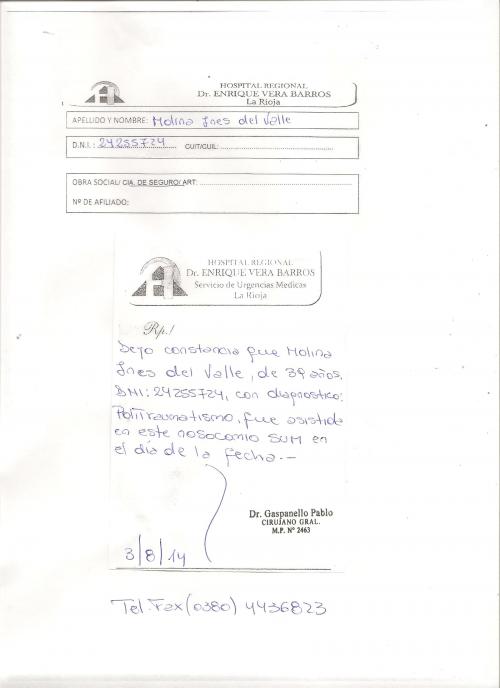 HOSPITAL REGIONAL
Dr. ENRIQUE VERA BARROS
La Rioja
APELLIDO Y NOMBRE: Molina Ines del Valle
D.N.I.: 24255724 CUIT/CUIL:
OBRA SOCIAL/ CIA. DE SEGURO/ ART:
Nº DE AFILIADO:
HOSPITAL REGIONAL
Dr. ENRIQUE VERA BARROS
Servicio de Urgencias Medicas
La Rioja
Rp./
Dejo constancia que Molina
Ines del Valle, de 39 años,
DNI: 24255724, con diagnostico:
Politraumatismo, fue asistida
en este nosocomio SUM en
el día de la fecha.-
Dr. Gaspanello Pablo
CIRUJANO GRAL.
M.P. Nº 2463
3/8/14
Tel. Fax (0380) 4436823